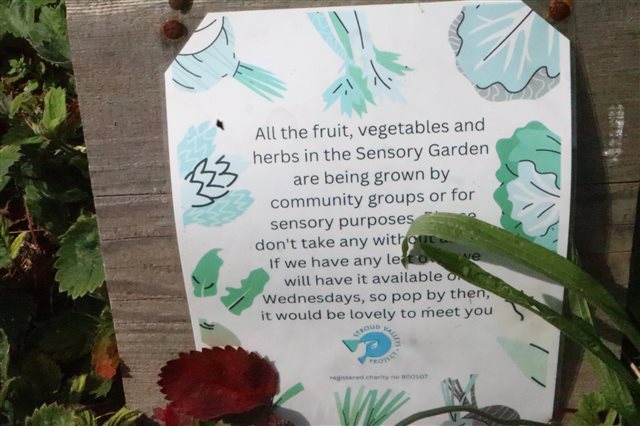 All the fruit, vegetables and
herbs in the Sensory Garden
are being grown by
community groups or for
sensory purposes.
don't take any without
If we have any left we
will have it available
Wednesdays, so pop by then,
it would be lovely to meet you
STROUD VALLEYS PROJECT
registered charity no 900107